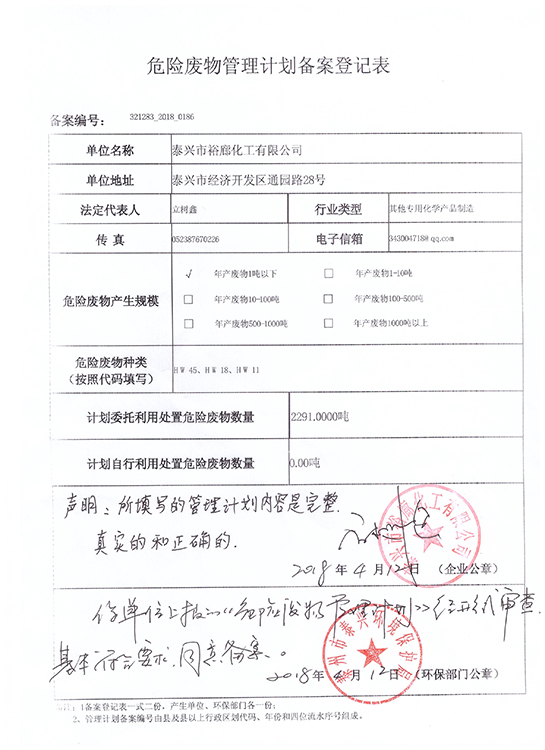 危险废物管理计划备案登记表
备案编号： 321283_2018_0186
单位名称 泰兴市裕廊化工有限公司
单位地址 泰兴市经济开发区通园路28号
法定代表人 立树鑫 行业类型 其他专用化学产品制造
传 真 052387670226 电子信箱 343004718@qq.com
危险废物产生规模
√ 年产废物1吨以下 □ 年产废物1-10吨
□ 年产废物10-100吨 □ 年产废物100-500吨
□ 年产废物500-1000吨 □ 年产废物1000吨以上
危险废物种类
（按照代码填写） HW 45、HW 18、HW 11
计划委托利用处置危险废物数量 2291.0000吨
计划自行利用处置危险废物数量 0.00吨
声明：所填写的管理计划内容是完整
真实的和正确的.
2018 年 4 月 12 日 （企业公章）
你单位上报的《危险废物管理计划》经形式审查,
基本符合要求,同意备案。
2018 年 4 月 12 日 （环保部门公章）
泰州市泰兴环境保护局
注：1备案登记表一式二份，产生单位、环保部门各一份；
2、管理计划备案编号由县及县以上行政区划代码、年份和四位流水序号组成。